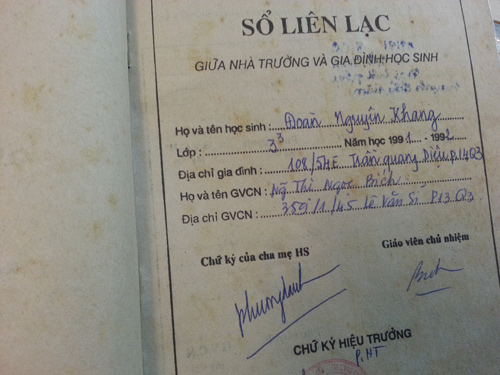 SỔ LIÊN LẠC
GIỮA NHÀ TRƯỜNG VÀ GIA ĐÌNH HỌC SINH
Họ và tên học sinh : Đoàn Nguyên Khang
Lớp : 3³ Năm học 1991 - 1992
Địa chỉ gia đình : 108/54E Trần Quang Diệu P.14Q3
Họ và tên GVCN : Ng Thị Ngọc Bích
Địa chỉ GVCN : 359/1/45 Lê Văn Sĩ P13 Q3
Chữ ký của cha mẹ HS Giáo viên chủ nhiệm
Bích
CHỮ KÝ HIỆU TRƯỞNG
P.HT